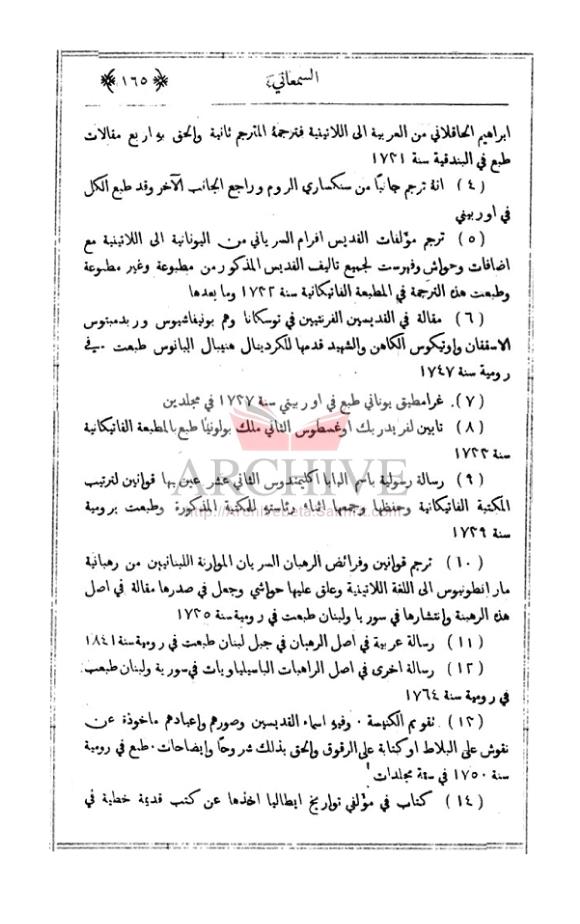 السمعاني
﴿ ١٦٥ ﴾
ابراهيم الحاقلاني من العربية الى اللاتينية فترجمة المترجم ثانية والحق بو اربع مقالات
طبع في البندقية سنة ١٧٣١
(٤) انة ترجم جانبًا من سنكساري الروم وراجع الجانب الآخر وقد طبع الكل
في اوربيني
(٥) ترجم مؤلفات القديس افرام السرياني من اليونانية الى اللاتينية مع
اضافات وحواش وفهرست لجميع تاليف القديس المذكور من مطبوعة وغير مطبوعة
وطبعت هذه الترجمة في المطبعة الفاتيكانية سنة ١٧٣٢ وما بعدها
(٦) مقالة في القديسين الفرنتيين في توسكانا وهم بونيفاشيوس وريدمبتوس
الاسقفان واوتيكوس الكاهن والشهيد قدمها للكردينال هنيبال البانوس طبعت في
رومية سنة ١٧٤٧
(٧) غرامطيق يوناني طبع في اوربيني سنة ١٧٣٧ في مجلدين
(٨) تابين لفريدريك اوغسطوس الثاني ملك بولونيا طبع بالمطبعة الفاتيكانية
سنة ١٧٣٣
(٩) رسالة رسولية باسم البابا اكليمندوس الثاني عشر عين بها قوانين لترتيب
المكتبة الفاتيكانية وحفظها وجمعها اثناء رئاستو للمكتبة المذكورة وطبعت برومية
سنة ١٧٣٩
(١٠) ترجم قوانين وفرائض الرهبان السريان الموارنة اللبنانيين من رهبانية
مار انطونيوس الى اللغة اللاتينية وعلق عليها حواشي وجعل في صدرها مقالة في اصل
هذه الرهبنة وانتشارها في سوريا ولبنان طبعت في رومية سنة ١٧٣٥
(١١) رسالة عربية في اصل الرهبان في جبل لبنان طبعت في رومية سنة ١٨٤١
(١٢) رسالة اخرى في اصل الراهبات الباسيلياويات في سورية ولبنان طبعت
في رومية سنة ١٧٦٤
(١٣) تقويم الكنيسة . وفيو اسماء القديسين وصورهم واعيادهم ماخوذة عن
نقوش على البلاط او كتابة على الرقوق والحق بذلك شروحًا وايضاحات . طبع في رومية
سنة ١٧٥٠ في ستة مجلدات
(١٤) كتاب في مؤلفي تواريخ ايطاليا اخذها عن كتب قديمة خطية في
ARCHIVE
http://Archivebeta.Sakhrit.com